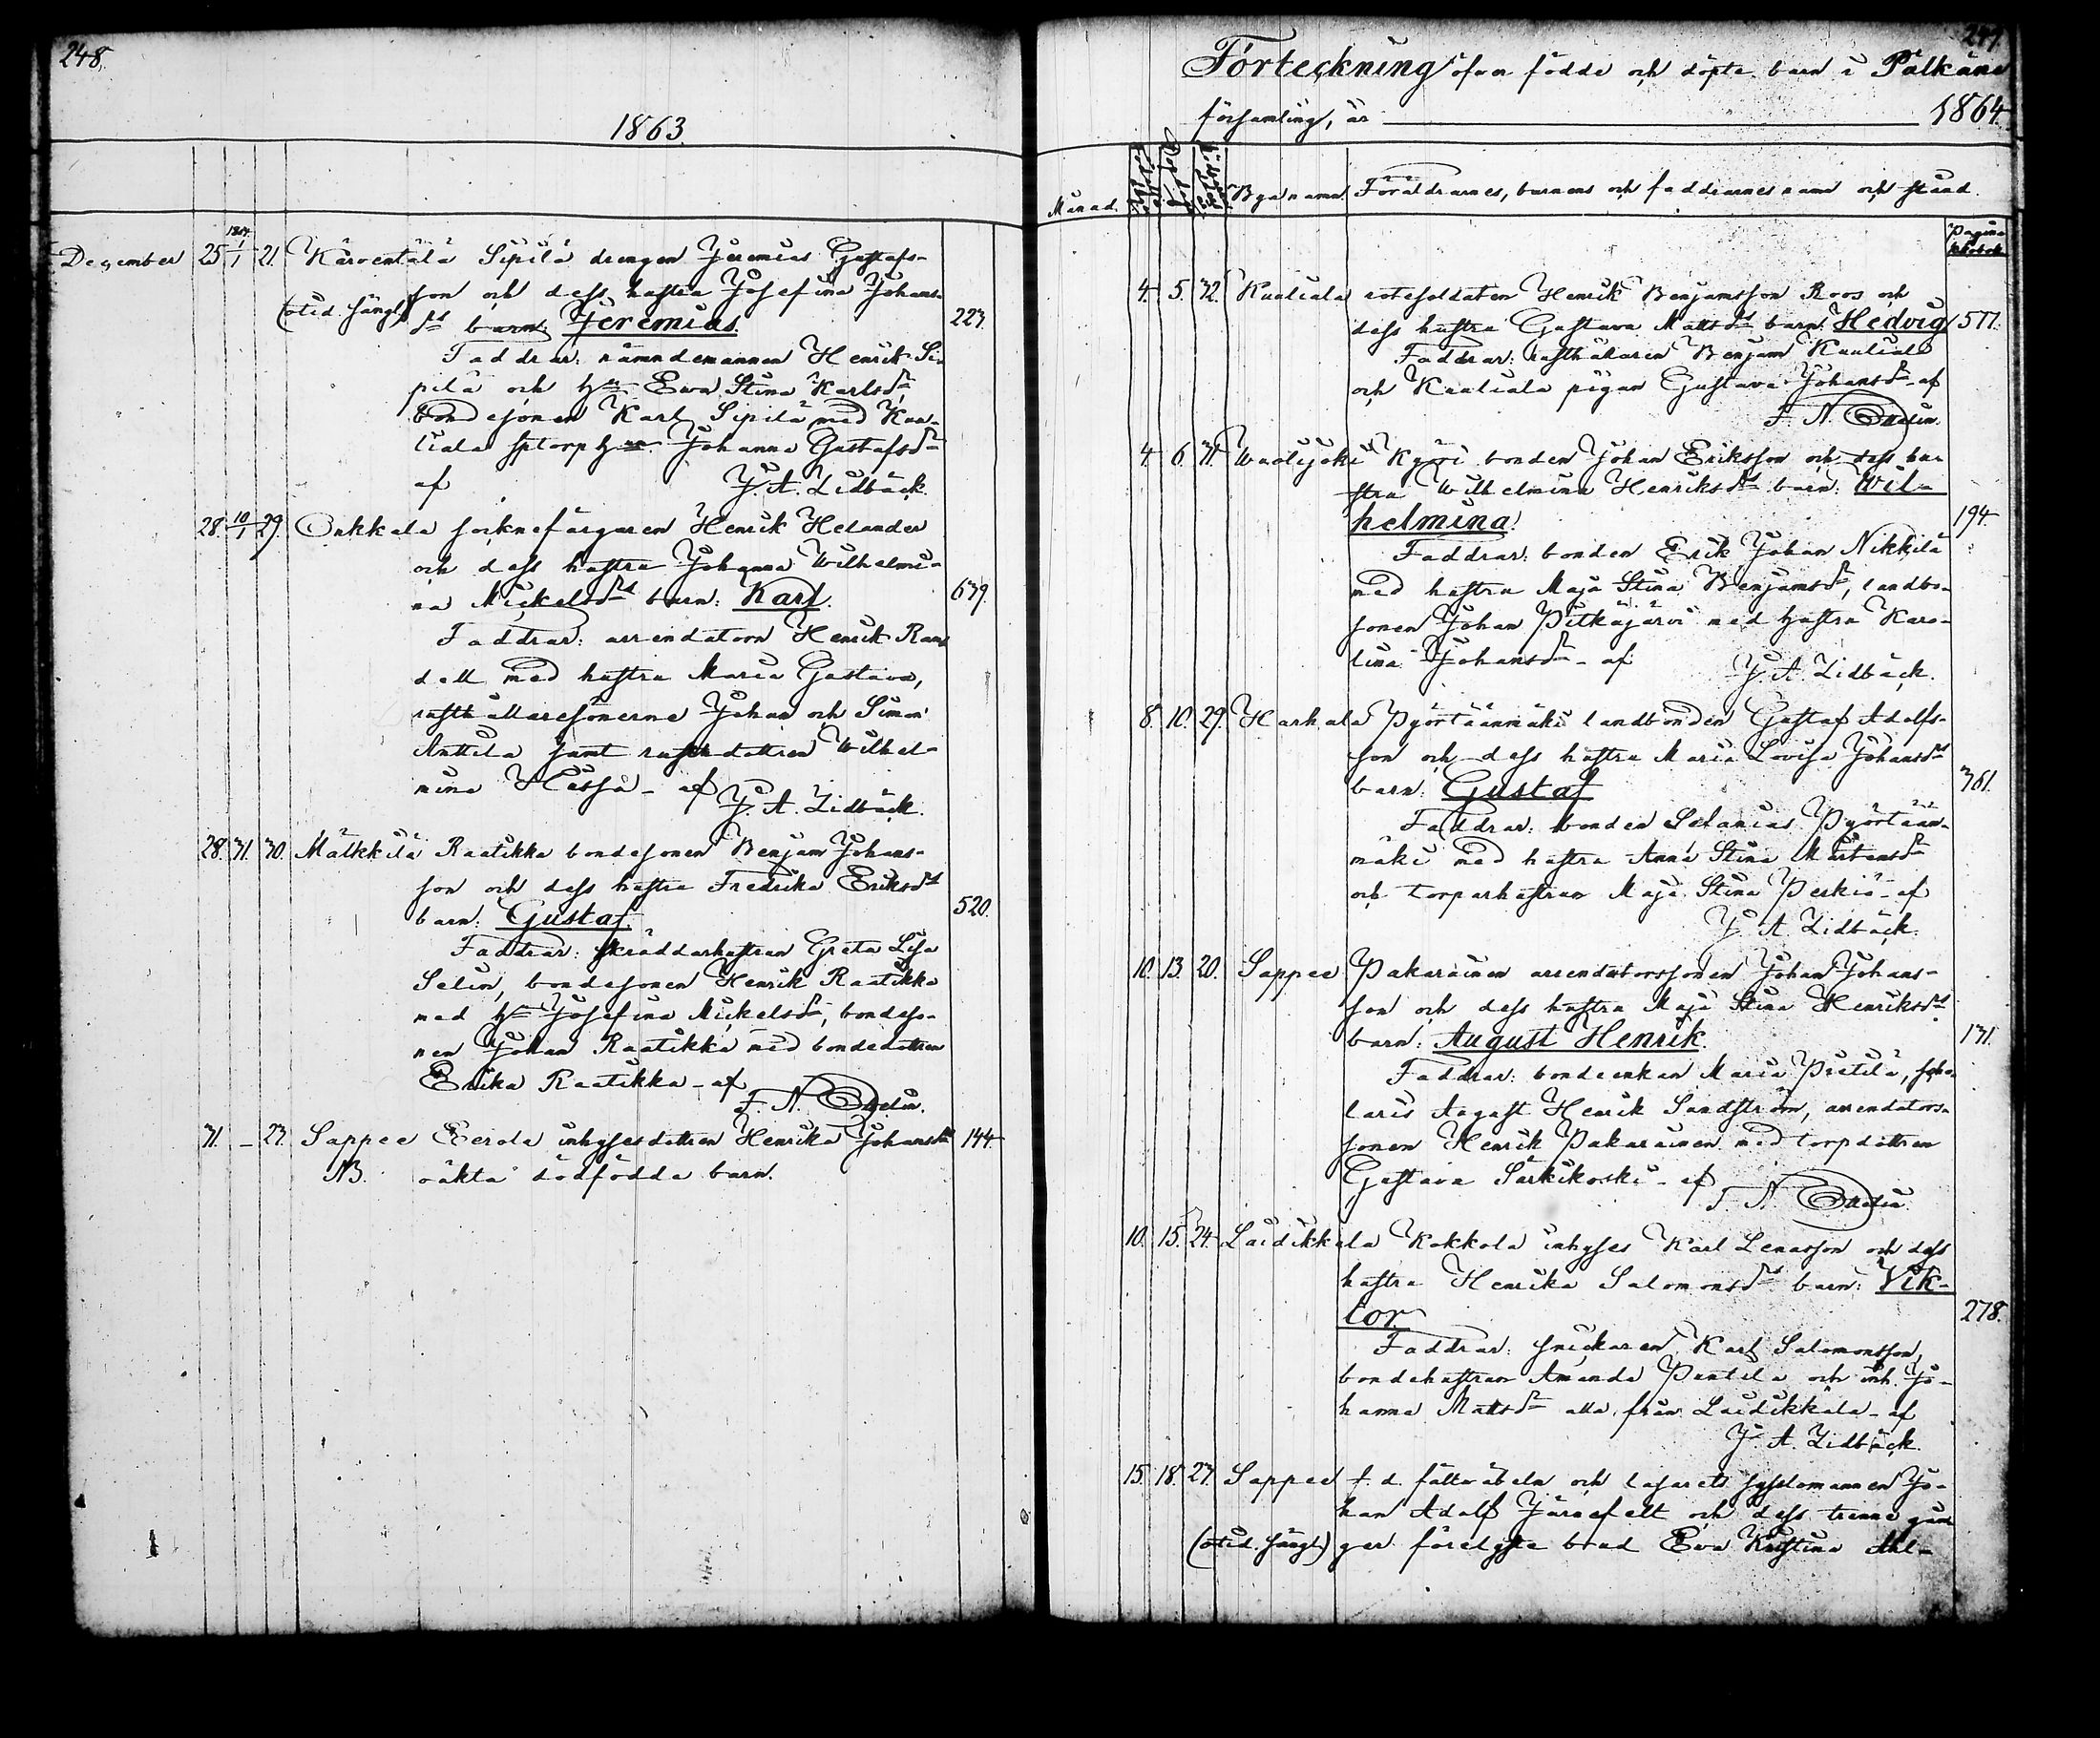 248.
1863.
December 25 1864 1/1 21. Kärventälä Sipilä drengen Jeremias Gustafs-
son och dess hustru Josefina Johans-
(otid. sängl.) drs barn: Jeremias. 223.
Faddrar: nämndemannen Henrik Si-
pilä och hn Ewa Stina Karlsdr,
bondesonen Karl Sipilä med Kuu-
liala sptorphn Johanna Gustafsdr
af J. A. Lidbäck.
28. 10/1 29. Onkkala socknefärgaren Henrik Helander
och dess hustru Johanna Wilhelmi-
na Mickelsdrs barn: Karl. 639.
Faddrar: arrendatorn Henrik Ram
dell med hustru Maria Gustava,
rusthållaresönerne Johan och Simon
Anttila samt rusth.dottren Wilhel-
mina Hassja - af
J. A. Lidbäck.
28. 31. 30. Mälkkilä Raatikka bondesonen Benjam Johans-
son och dess hustru Fredrika Eriksdrs
barn: Gustaf. 520.
Faddrar: skräddarhustrun Greta Lisa
Selin, bondesonen Henrik Raatikka
med hn Josefina Mickelsdr, bondeso-
nen Johan Raatikka med bondedottren
Erika Raatikka - af
F. N.
31. - 23. Sappee Eerola inhysesdottren Henrika Johansdrs 144.
NB. oäkta dödfödda barn.
Förteckning öfver födde och döpte barn i Pälkäne
församling, år 1864.
Månad. Byanamn. Föräldrarnes, barnens och faddrarnes namn och stånd.
Pagina
4. 5. 32. Kuuliala rotesoldaten Henrik Benjamsson Roos och
dess hustru Gustava Mattsdrs barn: Hedvig 577.
Faddrar: rusthållaren Benjam Kuuliala
och Kuuliala pigan Gustava Johansdr - af
F. N.
4. 6. 31. Wuolijoki Kyöri bonden Johan Eriksson och dess hu-
stru Wilhelmina Henriksdrs barn: Wil-
helmina. 194.
Faddrar: bonden Erik Johan Nikkilä
med hustru Maja Stina Benjamsdr, landbo-
sonen Johan Pitkäjärvi med hustru Karo-
lina Johansdr - af J. A. Lidbäck.
8. 10. 29. Harhala Pyörtäänmäki landbonden Gustaf Adolfs-
son och dess hustru Maria Lovisa Johansdrs
barn: Gustaf 361.
Faddrar: bonden Selanias Pyörtään-
mäki med hustru Anna Stina Mårtensdr
och torparhustrun Maja Stina Perkiö - af
J. A. Lidbäck.
10. 13. 20. Sappee Pakarainen arrendatorssonen Johan Johans-
son och dess hustru Maja Stina Henriksdrs
barn: August Henrik. 131.
Faddrar: bondeenkan Maria Prittilä, sko-
laris August Henrik Sandström, arrendators-
sonen Henrik Pakarainen med torpdottren
Gustava Särkikoski - af
F. N.
10. 15. 24. Laidikkala Kokkola inhyses Karl Lenasson och dess
hustru Henrika Salomonsdrs barn: Vik-
tor. 278.
Faddrar: snickaren Karl Salomonsson,
bondehustrun Amanda Penttilä och inh. Jo-
hanna Mattsdr alla från Laidikkala - af
J. A. Lidbäck.
15. 18. 27. Sappee f. d. fältväbeln och lasaretts sysslomannen Jo-
han Adolf Järnefelt och dess trenne gån
(otid. sängl.) ger förelyste brud Eva Kristina Ahl-